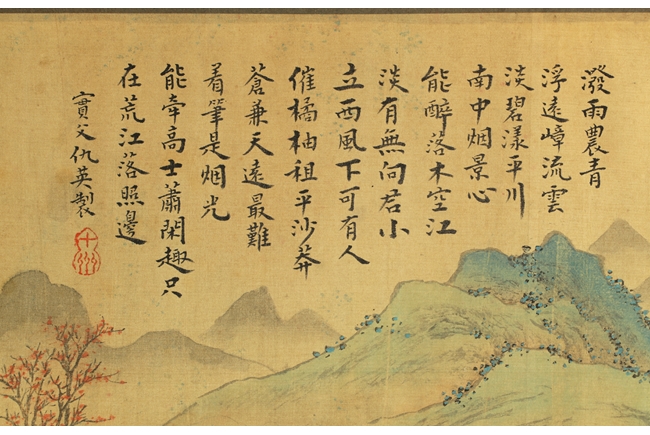 潑雨農青
浮遠嶂流雲
淡碧漾平川
南中烟景心
能醉落木空江
淡有無向君小
立西風下可有人
催橘柚租平沙莽
蒼兼天遠最難
着筆是烟光
能牽高士蕭閑趣只
在荒江落照邊
實父仇英製
十州